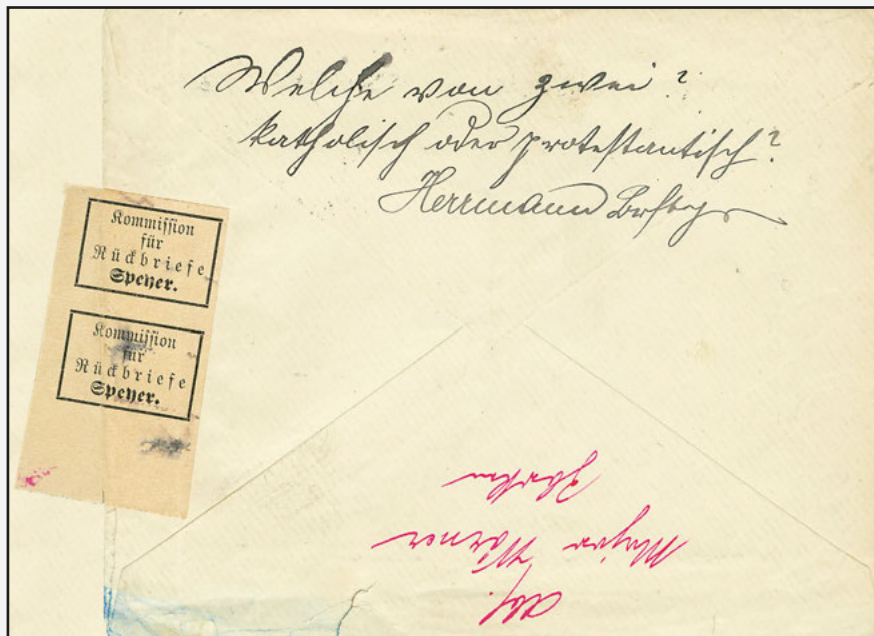 Welche von zwei?
katholisch oder protestantisch?
Herrmann
Kommission
für
Rückbriefe
Speyer.
Kommission
für
Rückbriefe
Speyer.
Abs.
Major Werner